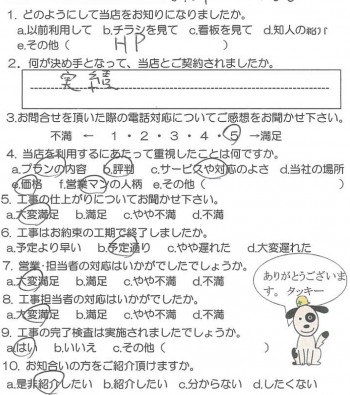 1. どのようにして当店をお知りになりましたか。
a.以前利用して b.チラシを見て c.看板を見て d.知人の紹介
e.その他( HP )
2. 何が決め手となって、当店とご契約されましたか。
実績
3.お問合せを頂いた際の電話対応についてご感想をお聞かせ下さい。
不満 ← 1・2・3・4・5 →満足
4. 当店を利用するにあたって重視したことは何ですか。
a.プランの内容 b.評判 c.サービスや対応のよさ d.当社の場所
e.価格 f.営業マンの人柄 e.その他( )
5. 工事の仕上がりについてお聞かせ下さい。
a.大変満足 b.満足 c.やや不満 d.不満
6. 工事はお約束の工期で終了しましたか。
a.予定より早い b.予定通り c.やや遅れた d.大変遅れた
7. 営業・担当者の対応はいかがでしたでしょうか。
a.大変満足 b.満足 c.やや不満 d.不満
8. 工事担当者の対応はいかがでしたか。
a.大変満足 b.満足 c.やや不満 d.不満
9. 工事の完了検査は実施されましたでしょうか。
a.はい b.いいえ c.その他( )
10. お知合いの方をご紹介頂けますか。
a.是非紹介したい b.紹介したい c.分からない d.したくない
ありがとうございま
す。 タッキー